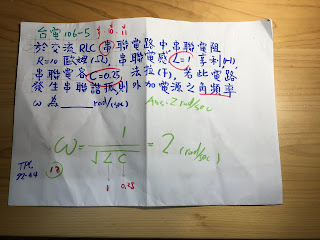 台電106-5
於交流RLC串聯電路中,串聯電阻
R=10歐姆(Ω),串聯電感L=1亨利(H),
串聯電容C=0.25法拉(F),若此電路
發生串聯諧振,則外加電源之角頻率
ω為____rad/(sec)
Ans:2rad/sec
ω = 1/√LC = 2 (rad/sec)
1 0.25